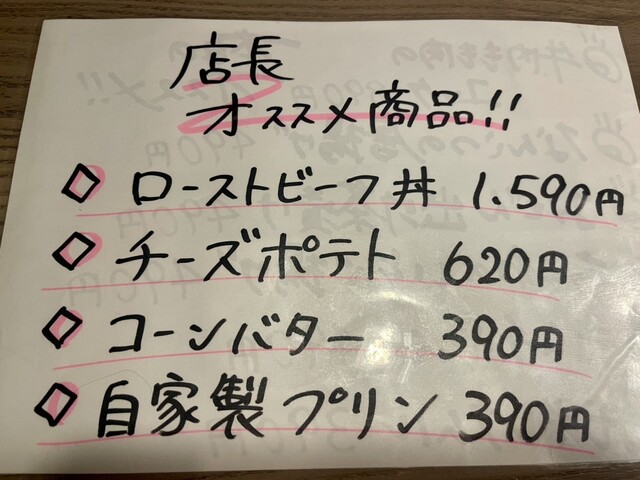 店長
オススメ商品!!
◇ ローストビーフ丼 1.590円
◇ チーズポテト 620円
◇ コーンバター 390円
◇ 自家製プリン 390円